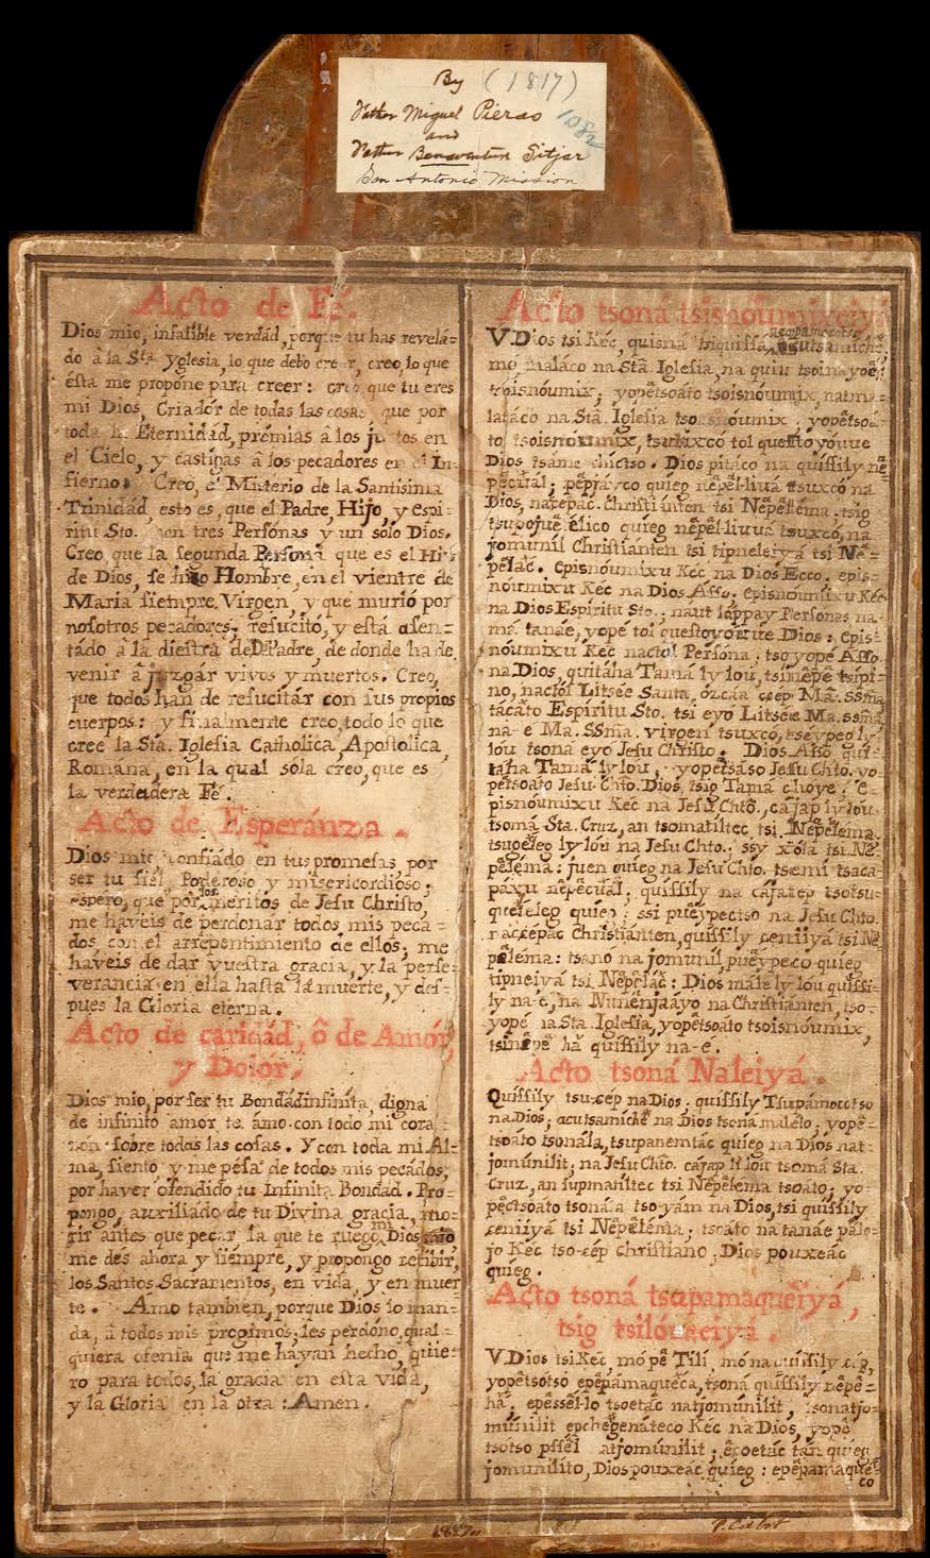 By (1817)
Father Miguel Pieras 1082
and
Father Bonaventure Sitjar
San Antonio Mission
Acto de Fé.
Dios mio, infalible verdád, porque tu has revelá=
do â la Sta. yglesia, lo que debo creer, creo, lo que
ésta me propone para creer: creo que tu eres
mi Dios, Criadór de todas las cosas, que por
toda la Eternidád, prémias â los justos en
el Cielo, y castigas â los pecadores en el In=
fierno. Creo, el Misterio de la Santisima
Trinidád, esto es, que el Padre, Hijo, y espi=
ritu Sto. son tres Persónas y un sólo Dios.
Creo, que la segunda Persona que es el Hijo
de Dios, se hizo Hombre, en el vientre de
Maria siempre Virgen, y que murió por
nosotros pecadores, resucitó, y está asen=
tádo â la diestra de D. Padre, de donde ha de
venir â juzgár vivos y muertos. Creo,
que todos han de resucitár con sus propios
cuerpos: y finalmente creo, todo lo que
cree la Sta. Iglesia Catholica, Apostolica,
Romána, en la qual sóla creo, que es
la verdadera Fé.
Acto de Esperánza.
Dios mio confiádo en tus promesas, por
ser tu fiel, Poderoso y misericordioso,
espero, que por los meritos de Jesu Christo,
me havéis de perdonar todos mis peca=
dos, con el arrepentimiento de ellos; me
havéis de dar vuestra gracia, y la perse=
verancia en ella hasta la muerte, y des=
pues la Gloria eterna.
Acto de caridád, ô de Amór,
y Dolór.
Dios mio, por ser tu Bondád infinita, digna
de infinito amor, te ámo con todo mi cora=
zon sobre todas las cosas. Y con toda mi Al=
ma, siento y me pésa de todos mis pecádos,
por haver ofendido tu Infinita Bondad. Pro=
pongo, auxiliado de tu Divina gracia, mo=
rir antes que pecar, la que te ruego Dios mio
me dés ahora y siémpre, y propongo recibir,
los Santos Sacramentos, en vida, y en muer
te. Amo tambien, porque Dios lo man=
da, â todos mis progimos; les perdóno, qual=
quiera ofensa que me hayan hecho, quie=
ro para todos, la gracia en esta vida,
y la Gloria en la otra: Amen.
Acto tsoná tsisnóumixveiyá
V. Dios tsi Kéc, quisná tsiquissá,
mó, na Sta. Iglesia, na quiu
tsoisnóumix; yopêtsoáto tsoisnóumix, natma=
latáco na Stâ. Iglesia tsoisnóumix; yopêtsoá=
to tsoisnoumix, tsutixcó tol questoyóuue
Dios tsáme chictso. Dios pitáco na quissily nê
pêcural; quieg nêpêl-liuá tsuxcó na
Dios, natêpac. Christiánten tsi Nêpêltéma. tsig
tsupojuê élico quieg nêpêl-liuuá tsuxcó, na
jomunil Christiánten tsi tipneleiyá tsi Nê=
pêlac. episnóumixu Kéc na Dios Ecco. epis=
nóumixu Kéc na Dios Asso. episnóumixu Kéc
na Dios Espiritu Sto.; naut láppay Personas na=
má tanáe, yopé tol questoyóuue Dios: epis=
nóumixu Kéc nactol Persóna; tso yopé Asso
na Dios, quitáha Tamá ly lou, tsinepé tsipi=
no, nactol Litsée Santa, ózcáa cséP Ma. SSma.
tácáto Espiritu Sto. tsi eyó Litsée Ma. ssma.
na-e Ma. SSma. virgen tsuxco, tseypeo ly
lóu tsoná eyo Jesu Christo. Dios Asso qui=
taha Tamá ly lou, yopetsáso Jesu Chto. yo=
petsoato Jesu Chto. Dios, tsig Tamá choye. E=
pisnóumixu Kéc na Jesu Chto., cajap ly lóu
tsomá Sta. Cruz, an tsomatiltec tsi Nêpêléma.
tsugéleg ly lóu na Jesu Chto.; ssy xólá tsi Nê=
pêléma: juen quieg na Jesu Chto. tsemi tsaca=
páxu nepecual; quissily na cájatep tsotsu=
queteleg quieg; ssi puêypectso na Jesu Chto.
Christiánten, quissily ceniiyá tsi Nê
pêléma: tsano na jomunil, puêypeco quieg
tipneiyá tsi Nêpêlac: Dios mále ly lóu quissi=
ly na-é, na Nunénjaayo na Christiánten, tso=
yopé na Sta. Iglesia, yopêtsoáto tsoisnóumix,
tsinepê ha quissily na-é.
Acto tsoná Naleiyá.
Quissily tsu-cép na Dios. quissily Tsupámoctso
na Dios; acutsamichê na Dios tsoná maléto; yopê=
tsoato tsonála, tsupanemtác quieg na Dios nat=
jomúnilit, na Jesu Chto. cájap ly lóu tsomá Sta.
Cruz, an supmaniltec tsi Nêpêléma tsoáto; yo=
pêctsoáto tsonála tso yám na Dios, tsi quissily
ceniiyá tsi Nêpêléma; tsoáto na tanáe pálo=
jo Kéc tso-cép christiano, Dios pouxeác
quieg.
Acto tsoná tsapamaquêiyá,
tsig tsilóaeiyá.
V. Dios tsi Kéc, mó pê Tili, mó na quissily cég,
yopêtsotsó epêpámaquéca, tsoná quissily nêpê=
há. epessêl-lo tsoetác natjomúnilit, tsonatjo=
múnilit epchegenáteco Kéc na Dios, yopê
tsotso pssêl atjomúnilit; êcoetác tan quieg
jomunilito, Dios pouxeác quieg: epêpamaquê=
co
P. Cabot